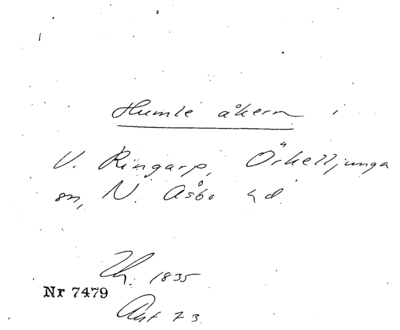 Humle åkern i
V. Ringarp, Örkelljunga
sn, N. Åsbo hd
Th. 1835
Nr 7479
Akt 73